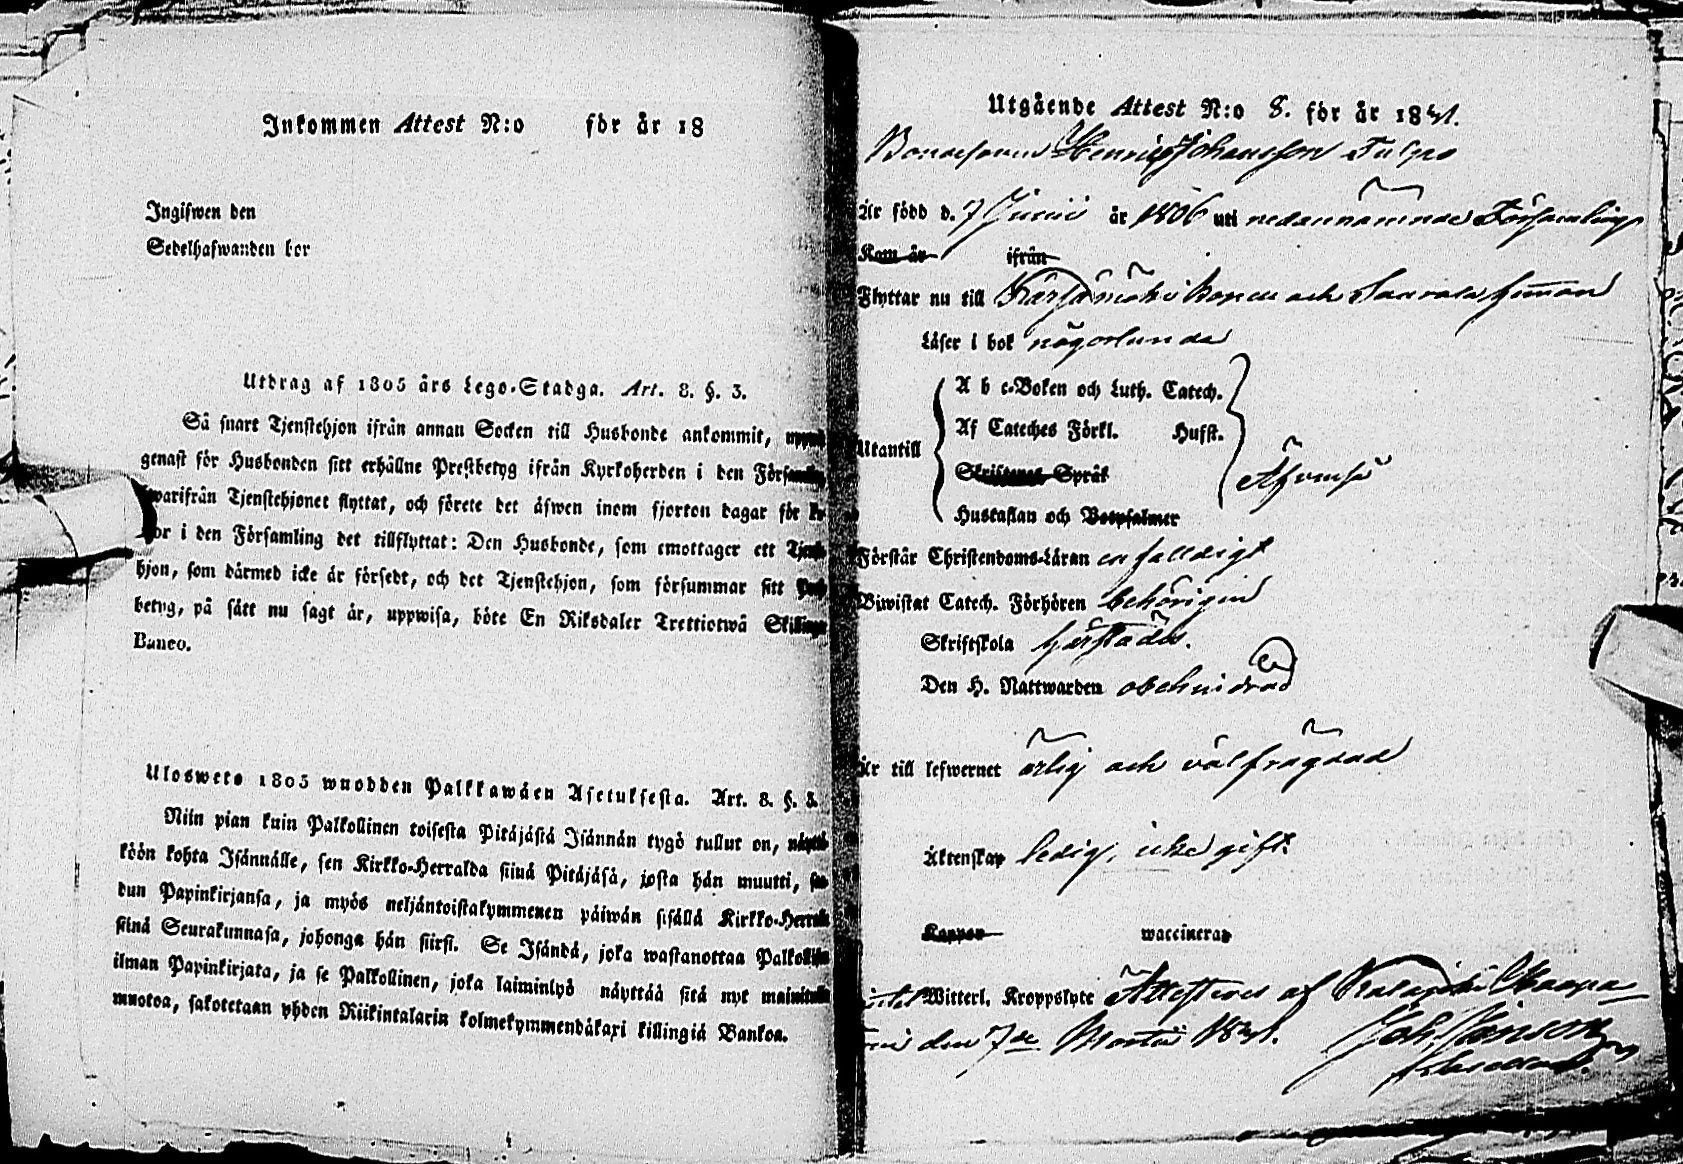 Inkommen Attest N:o för år 18
Ingifwen den
Sedelhafwanden bor
Utdrag af 1805 års Lego-Stadga. Art. 8. §. 3.
Så snart Tjenstehjon ifrån annan Socken till Husbonde ankommit,
genast för Husbonden sitt erhållne Prestbetyg ifrån Kyrkoherden i den
hwarifrån Tjenstehjonet flyttat, och förete det äfwen inom fjorton dagar för
i den Församling det tillflyttat: Den Husbonde, som emottager ett
hjon, som därmed icke är försedt, och det Tjenstehjon, som försummar sitt
betyg, på sätt nu sagt är, uppwisa, böte En Riksdaler Trettiotwå Skillingar
Banco.
Ulosweto 1805 wuodden Palkkawäen Asetuksesta. Art. 8. §. 3.
Niin pian kuin Palkollinen toisesta Pitäjästä Isännän tygö tullut on,
köön kohta Isännälle, sen Kirkko-Herralda siinä Pitäjäsä, josta hän muutti,
dun Papinkirjansa, ja myös neljäntoistakymmenen päiwän sisällä Kirkko-
siinä Seurakunnasa, johonga hän siirsi. Se Isändä, joka wastanottaa
ilman Papinkirjata, ja se Palkollinen, joka laiminlyö näyttää sitä nyt
muotoa, sakotetaan yhden Riikintalarin kolmekymmendäkaxi killingiä Bankoa.
Utgående Attest N:o 8. för år 1841.
Bondesonen Henric Johansson
Är född d. 7 Junii år 1806 uti nedannämnde Församling
Kom år ifrån
Flyttar nu till Kärsämäki och
Läser i bok någorlunda
A b c-Boken och Luth. Catech.
Af Cateches Förkl. Hust.
Utantill
Skriftenes Språk
Äfvenså
Hustaflan och Botpsalmer
Förstår Christendoms-Läran enfaldigt
Biwistat Catech. Förhören behörigen
Skriftskola härstädes.
Den H. Nattwarden obehindrad
Är till lefwernet ärlig och välfrägdad
Äktenskap ledig, icke gift.
Koppor waccinerad
Witterl. Kroppslyte Attesteres af
den 7de Martii 1841. Joh.